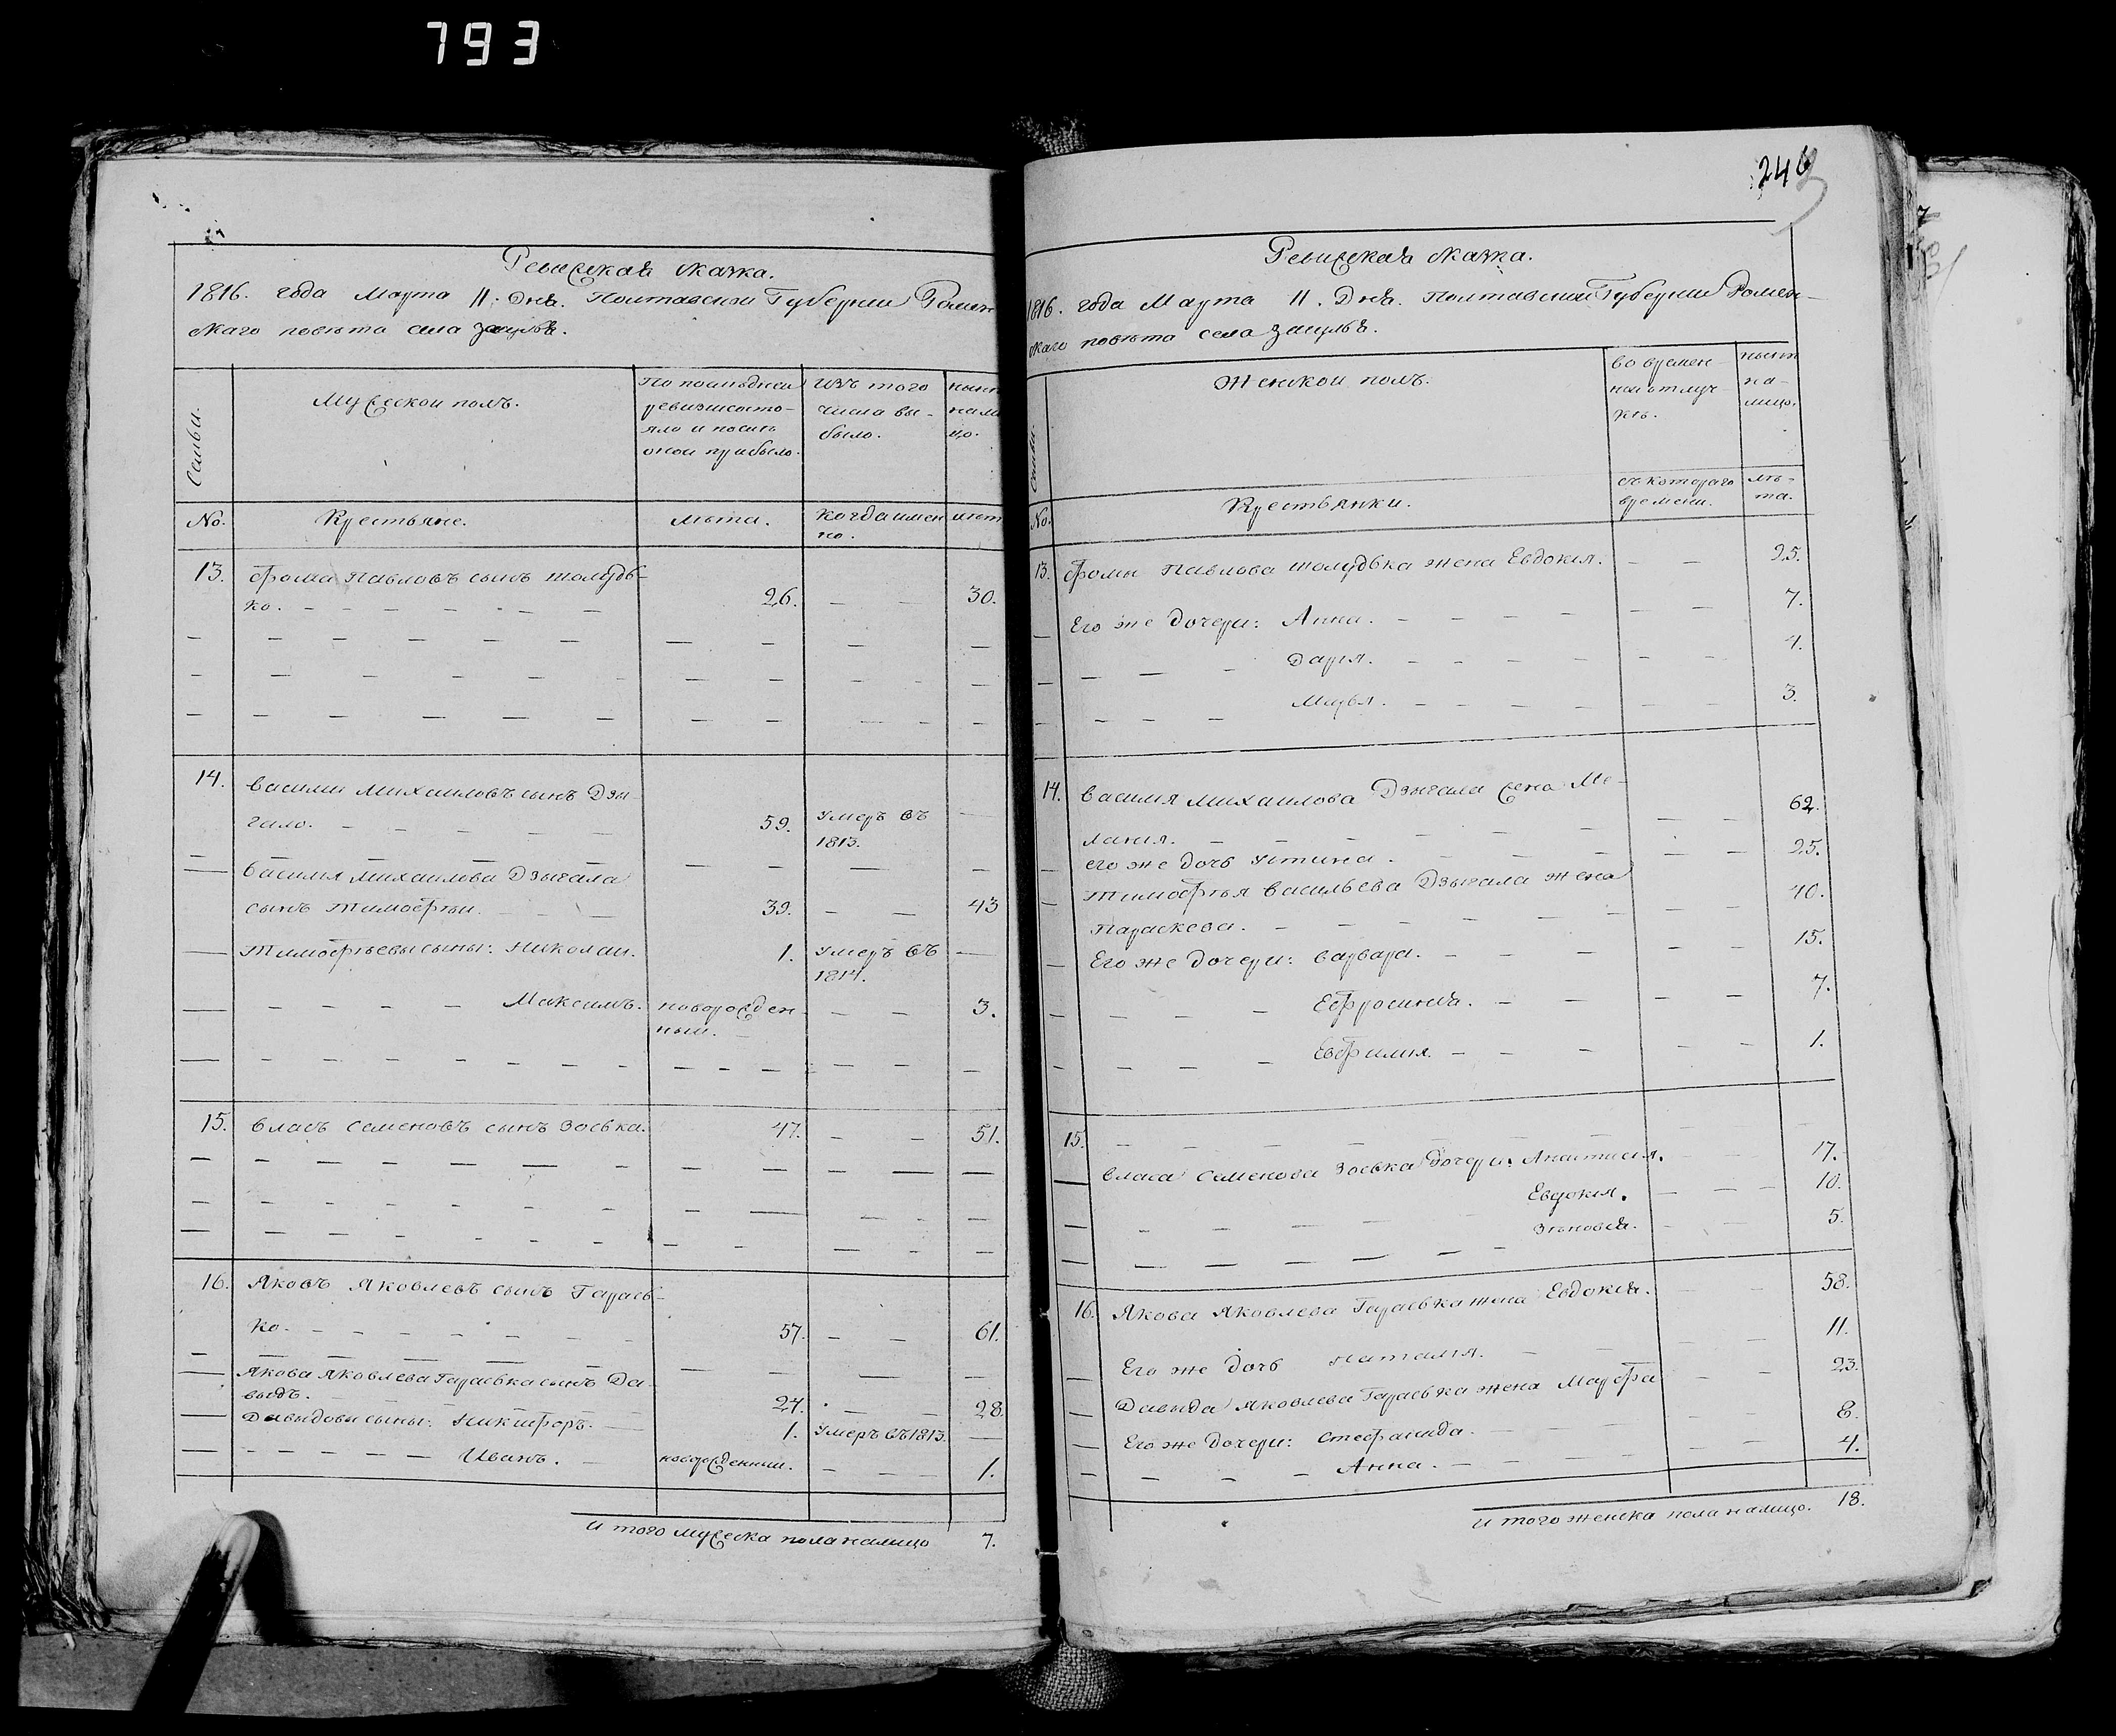 793
Ревижская скажка.
1816. года Марта 11. Дня. Полтавской Губернии Ромен
скаго повѣта села Заулья.
Семьи.
Мужеской полъ.
По последней
ревизии состо-
яло и после
оной прибыло.
Изъ того
числа вы-
было.
ныне
нали
цо.
No.
Крестьяне.
Лѣта.
Когда имен
но.
лѣт
13. Фрома Павловъ сынъ Шолудь-
ко. 26. 30.
14. Василии Михаиловъ сынъ Дзы-
гало. 59. Умеръ въ
1813.
Василия Михаилова Дзыгала
сынъ Тимофѣи. 39. 43
Тимофѣевы сыны: Николаи. 1. Умеръ въ
1814.
Максимъ. новорожден-
ныи. 3.
15. Власъ Семеновъ сынъ Зоевка. 47. 51.
16. Яковъ Яковлевъ сынъ Гараев-
ко. 57. 61.
Якова Яковлева Гараевка сынъ Да-
выдъ. 24. 28.
Давыдовы сыны: Никифоръ. 1. Умеръ въ 1813.
Иванъ. новорожденныи. 1.
И того мужеска пола налицо 7.
246
Ревижская скажка.
1816. года Марта 11. Дня. Полтавской Губернии Ромен-
скаго повѣта села Заулья.
Семьи.
Женской полъ.
во времен-
ной отлуч-
кѣ.
нынѣ
на-
лицо.
съ котораго
времени.
лѣ-
та.
No.
Крестьянки.
13. Фромы Павлова Шолудька жена Евдокия. 25.
Его же дочери: Анна. 7.
Дария. 4.
Марья. 3.
14. Василия Михаилова Дзыгала жена Ме-
лания. 62.
его же дочь Устина. 25.
Тимофѣя Васильева Дзыгала жена
Параскева. 40.
Его же дочери: Варвара. 15.
Ефросиния. 7.
Евфимия. 1.
15.
Власа Семенова Зоевка дочери: Анастасия. 17.
Евдокия. 10.
Зѣновия. 5.
16. Якова Яковлева Гараевка жена Евдокия. 58.
Его же дочь Наталия. 11.
Давыда Яковлева Гараевка жена Марфа 23.
Его же дочери: Стефанида. 8.
Анна. 4.
И того женска пола налицо. 18.